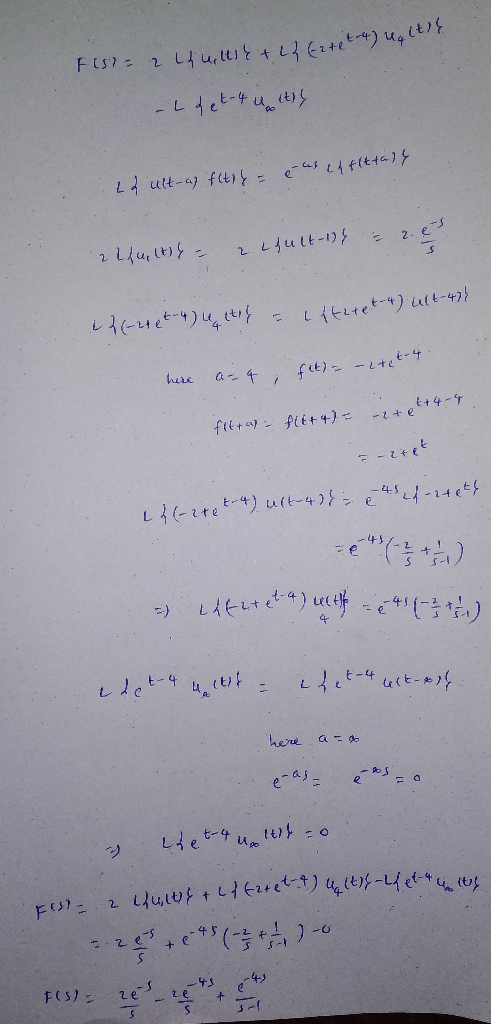 F(s) = 2 L{u₁(t)} + L{(-2+e^{t-4}) u₄(t)}
- L{e^{t-4} u_∞(t)}
L{u(t-a) f(t)} = e^{-as} L{f(t+a)}
2 L{u₁(t)} = 2 L{u(t-1)} = 2 · e^{-s}/s
L{(-2+e^{t-4}) u₄(t)} = L{(-2+e^{t-4}) u(t-4)}
here a=4, f(t) = -2+e^{t-4}
f(t+a) = f(t+4) = -2+e^{t+4-4}
= -2+e^t
L{(-2+e^{t-4}) u(t-4)} = e^{-4s} L{-2+e^t}
= e^{-4s} (-2/s + 1/(s-1))
⇒ L{(-2+e^{t-4}) u₄(t)} = e^{-4s} (-2/s + 1/(s-1))
L{e^{t-4} u_∞(t)} = L{e^{t-4} u(t-∞)}
here a=∞
e^{-as} = e^{-∞s} = 0
⇒ L{e^{t-4} u_∞(t)} = 0
F(s) = 2 L{u₁(t)} + L{(-2+e^{t-4}) u₄(t)} - L{e^{t-4} u_∞(t)}
= 2 e^{-s}/s + e^{-4s} (-2/s + 1/(s-1)) - 0
F(s) = 2e^{-s}/s - 2e^{-4s}/s + e^{-4s}/(s-1)